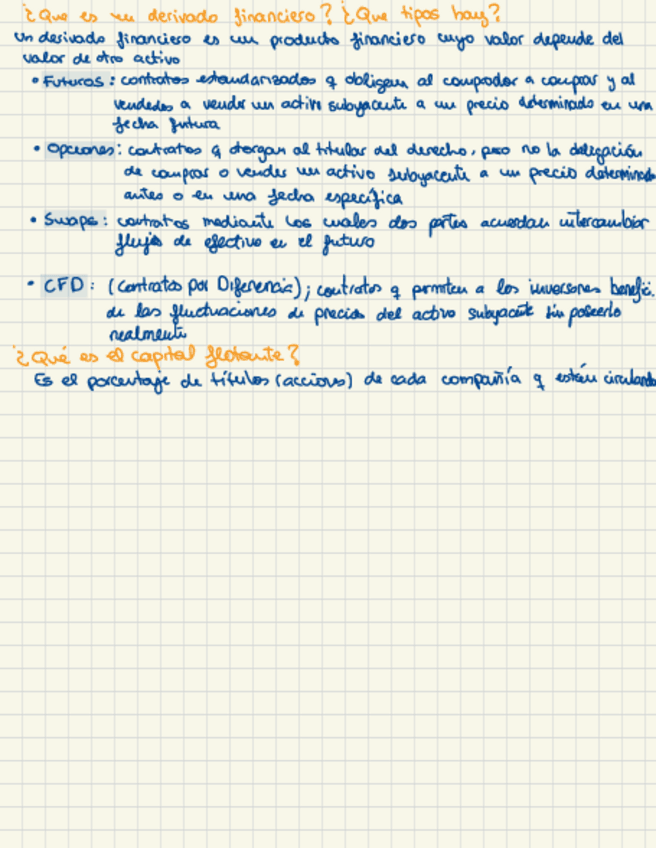 ¿Que es un derivado financiero? ¿Que tipos hay?
un derivado financiero es un producto financiero cuyo valor depende del
valor de otro activo
• Futuros: contratos estandarizados q obligan al comprador a comprar y al
vendedor a vender un activo subyacente a un precio determinado en una
fecha futura
• Opciones: contratos q otorgan al titular del derecho, pero no la obligación
de comprar o vender un activo subyacente a un precio determinado
antes o en una fecha específica
• Swaps: contratos mediante los cuales dos partes acuerdan intercambiar
flujos de efectivo en el futuro
• CFD: (Contratos por Diferencia); contratos q permiten a los inversores benefic.
de las fluctuaciones de precios del activo subyacente sin poseerlo
realmente
¿Qué es el capital flotante?
Es el porcentaje de títulos (acciones) de cada compañía q están circulando